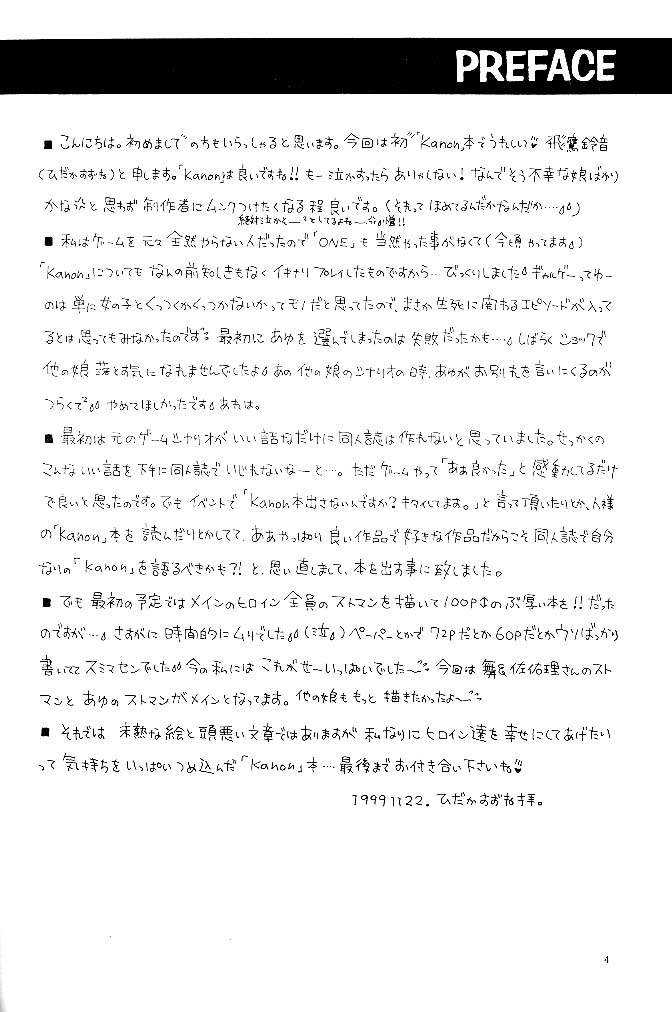 PREFACE
■ こんにちは。初めまして の方もいらっしゃると思います。今回は初"Kanon"本でうれしい♥ 飛鷹鈴音
(ひだかすずね)と申します。「Kanon」は良いですね!! もー泣かすったらありゃしない! なんでそう不幸な娘ばかり
かなぁと思わず 制作者にムンクつけたくなる程 良いです。(それって ほめてるんだかなんだか…)
■ 私はゲームを 元々 全然やらない人だったので「ONE」も 当然やった事がなくて(今頃やってます)
「Kanon」についても なんの前知しきもなく イキナリ プレイしたものですから…びっくりしました ギャルゲーってゆー
のは 単に女の子とくっつくかくっつかないかってモノだと思ってたので、まさか 生死に関わるエピソードが入って
るとは思ってもみなかったのです 最初に あゆを 選んでしまったのは 失敗だったかも…。しばらく ショックで
他の娘 落とす気になれませんでしたよ あの 他の娘のシナリオの時、あゆがお別れを言いにくるのが
つらくて やめてほしかったです あれは。
■ 最初は元のゲームシナリオが いい話なだけに同人誌は作れないと思っていました。せっかくの
こんないい話を 下手に同人誌で いじれないなーと…。ただゲームやって「あぁ良かった」と感動してるだけ
で良いと思ったのです。でも イベントで「Kanon本出さないんですか?キタイしてます。」と言って頂いたりとか、人様
の「Kanon」本を 読んだりとかしてて、ああやっぱり 良い作品で 好きな作品だからこそ 同人誌で自分
なりの「Kanon」を語るべきかも?! と、思い直しまして、本を出す事に致しました。
■ でも 最初の予定ではメインのヒロイン 全員のストマンを描いて100P↑のぶ厚い本を!! だった
のですが… さすがに 時間的にムリでした(泣) ペーパーとかで 72Pだとか60Pだとかウソばっかり
書いててスミマセンでした 今の私には これがせーいっぱいでした〜 今回は 舞&佐佑理さんのスト
マンと あゆのストマンがメインとなってます。他の娘ももっと描きたかったよ〜
■ それでは 未熟な絵と頭悪い文章ではありますが 私なりに ヒロイン達を 幸せにしてあげたい
って 気持ちをいっぱい つめ込んだ「Kanon」本…最後まで お付き合い下さいね♥
1999 11 22. ひだかすずね拝。
4